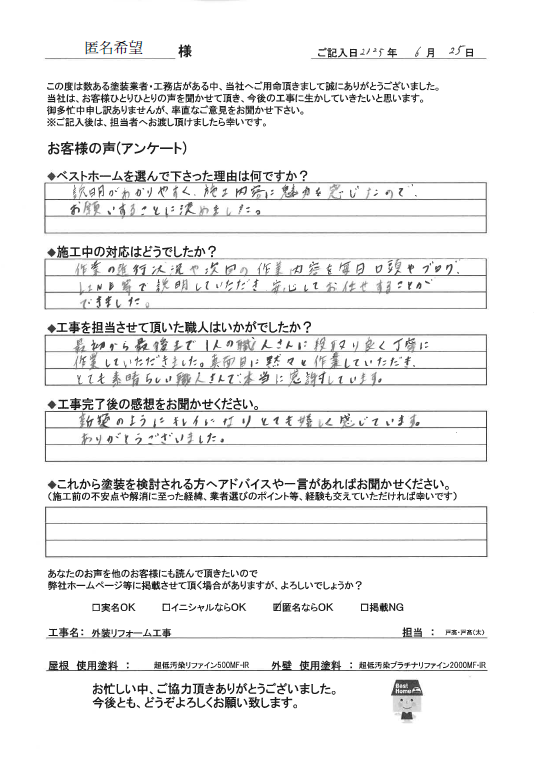 匿名希望 様
ご記入日 2025年 6月 25日
この度は数ある塗装業者・工務店がある中、当社へご用命頂きまして誠にありがとうございました。
当社は、お客様ひとりひとりの声を聞かせて頂き、今後の工事に生かしていきたいと思います。
御多忙中申し訳ありませんが、率直なご意見をお聞かせ下さい。
※ご記入後は、担当者へお渡し頂けましたら幸いです。
お客様の声(アンケート)
◆ベストホームを選んで下さった理由は何ですか?
説明がわかりやすく、施工内容に魅力を感じたので、
お願いすることに決めました。
◆施工中の対応はどうでしたか?
作業の進行状況や次回の作業内容を毎日口頭やブログ、
LINE等で説明していただき安心してお任せすることが
できました。
◆工事を担当させて頂いた職人はいかがでしたか?
最初から最後まで1人の職人さんに段取り良く丁寧に
作業していただきました。真面目に黙々と作業していただき、
とても素晴らしい職人さんで本当に感謝しています。
◆工事完了後の感想をお聞かせください。
新築のようにキレイになりとても嬉しく感じています。
ありがとうございました。
◆これから塗装を検討される方へアドバイスや一言があればお聞かせください。
(施工前の不安点や解消に至った経緯、業者選びのポイント等、経験も交えていただければ幸いです)
あなたのお声を他のお客様にも読んで頂きたいので
弊社ホームページ等に掲載させて頂く場合がありますが、よろしいでしょうか?
□実名OK □イニシャルならOK ☑匿名ならOK □掲載NG
工事名: 外装リフォーム工事 担当 : 戸高・戸高(太)
屋根 使用塗料 : 超低汚染リファイン500MF-IR 外壁 使用塗料 : 超低汚染プラチナリファイン2000MF-IR
お忙しい中、ご協力頂きありがとうございました。
今後とも、どうぞよろしくお願い致します。
Best Home